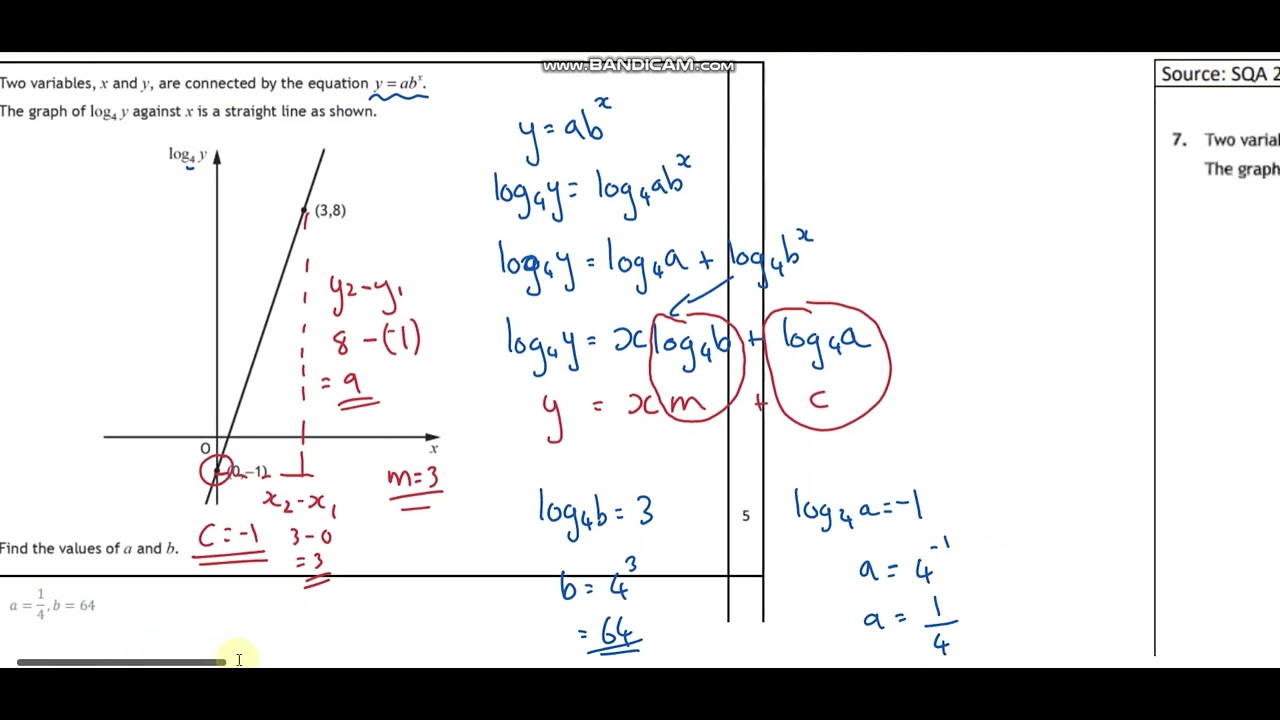 www.BANDICAM.com
Two variables, x and y, are connected by the equation y = abˣ.
The graph of log₄ y against x is a straight line as shown.
log₄ y
(3,8)
y₂ - y₁
8 - (-1)
= 9
O
x
(0,-1)
m = 3
x₂ - x₁
C = -1
3 - 0
= 3
Find the values of a and b.
a = 1/4, b = 64
y = abˣ
log₄y = log₄abˣ
log₄y = log₄a + log₄bˣ
log₄y = xlog₄b + log₄a
y = xm + c
log₄b = 3
b = 4³
= 64
5
log₄a = -1
a = 4⁻¹
a = 1/4
Source: SQA 2
7. Two varia
The graph